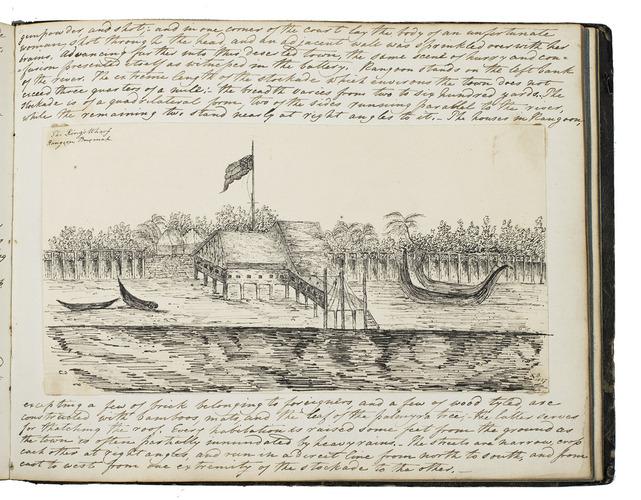 gunpowder, and shot;- and in one corner of the court lay the body of an unfortunate
woman shot through the head and an adjacent wall was sprinkled over with her
brains. Advancing further into this deserted town, the same scent of hurry and con-
-fusion presented itself as witnessed in the battery. Rangoon stands on the left bank
of the river. The extreme length of the stockade which environs the town does not
exceed three quarters of a mile;- the breadth varies from two to six hundred yards.- The
stockade is of a quadrilateral form, two of the sides running parallel to the river,
while the remaining two stand nearly at right angles to it;- The houses in Rangoon,
The King's Wharf
Rangoon Burmah
excepting a few of brick belonging to foreigners and a few of wood tyled are
constructed with bamboos, mats, and the leaf of the palmyra tree;- the latter serves
for thatching the roof. Every habitation is raised some feet from the ground as
the town is often partially innundated by heavy rains.- The streets are narrow, crop
each other at right angles, and run in a direct line from north to south, and from
east to west from one extremity of the stockade to the other.-